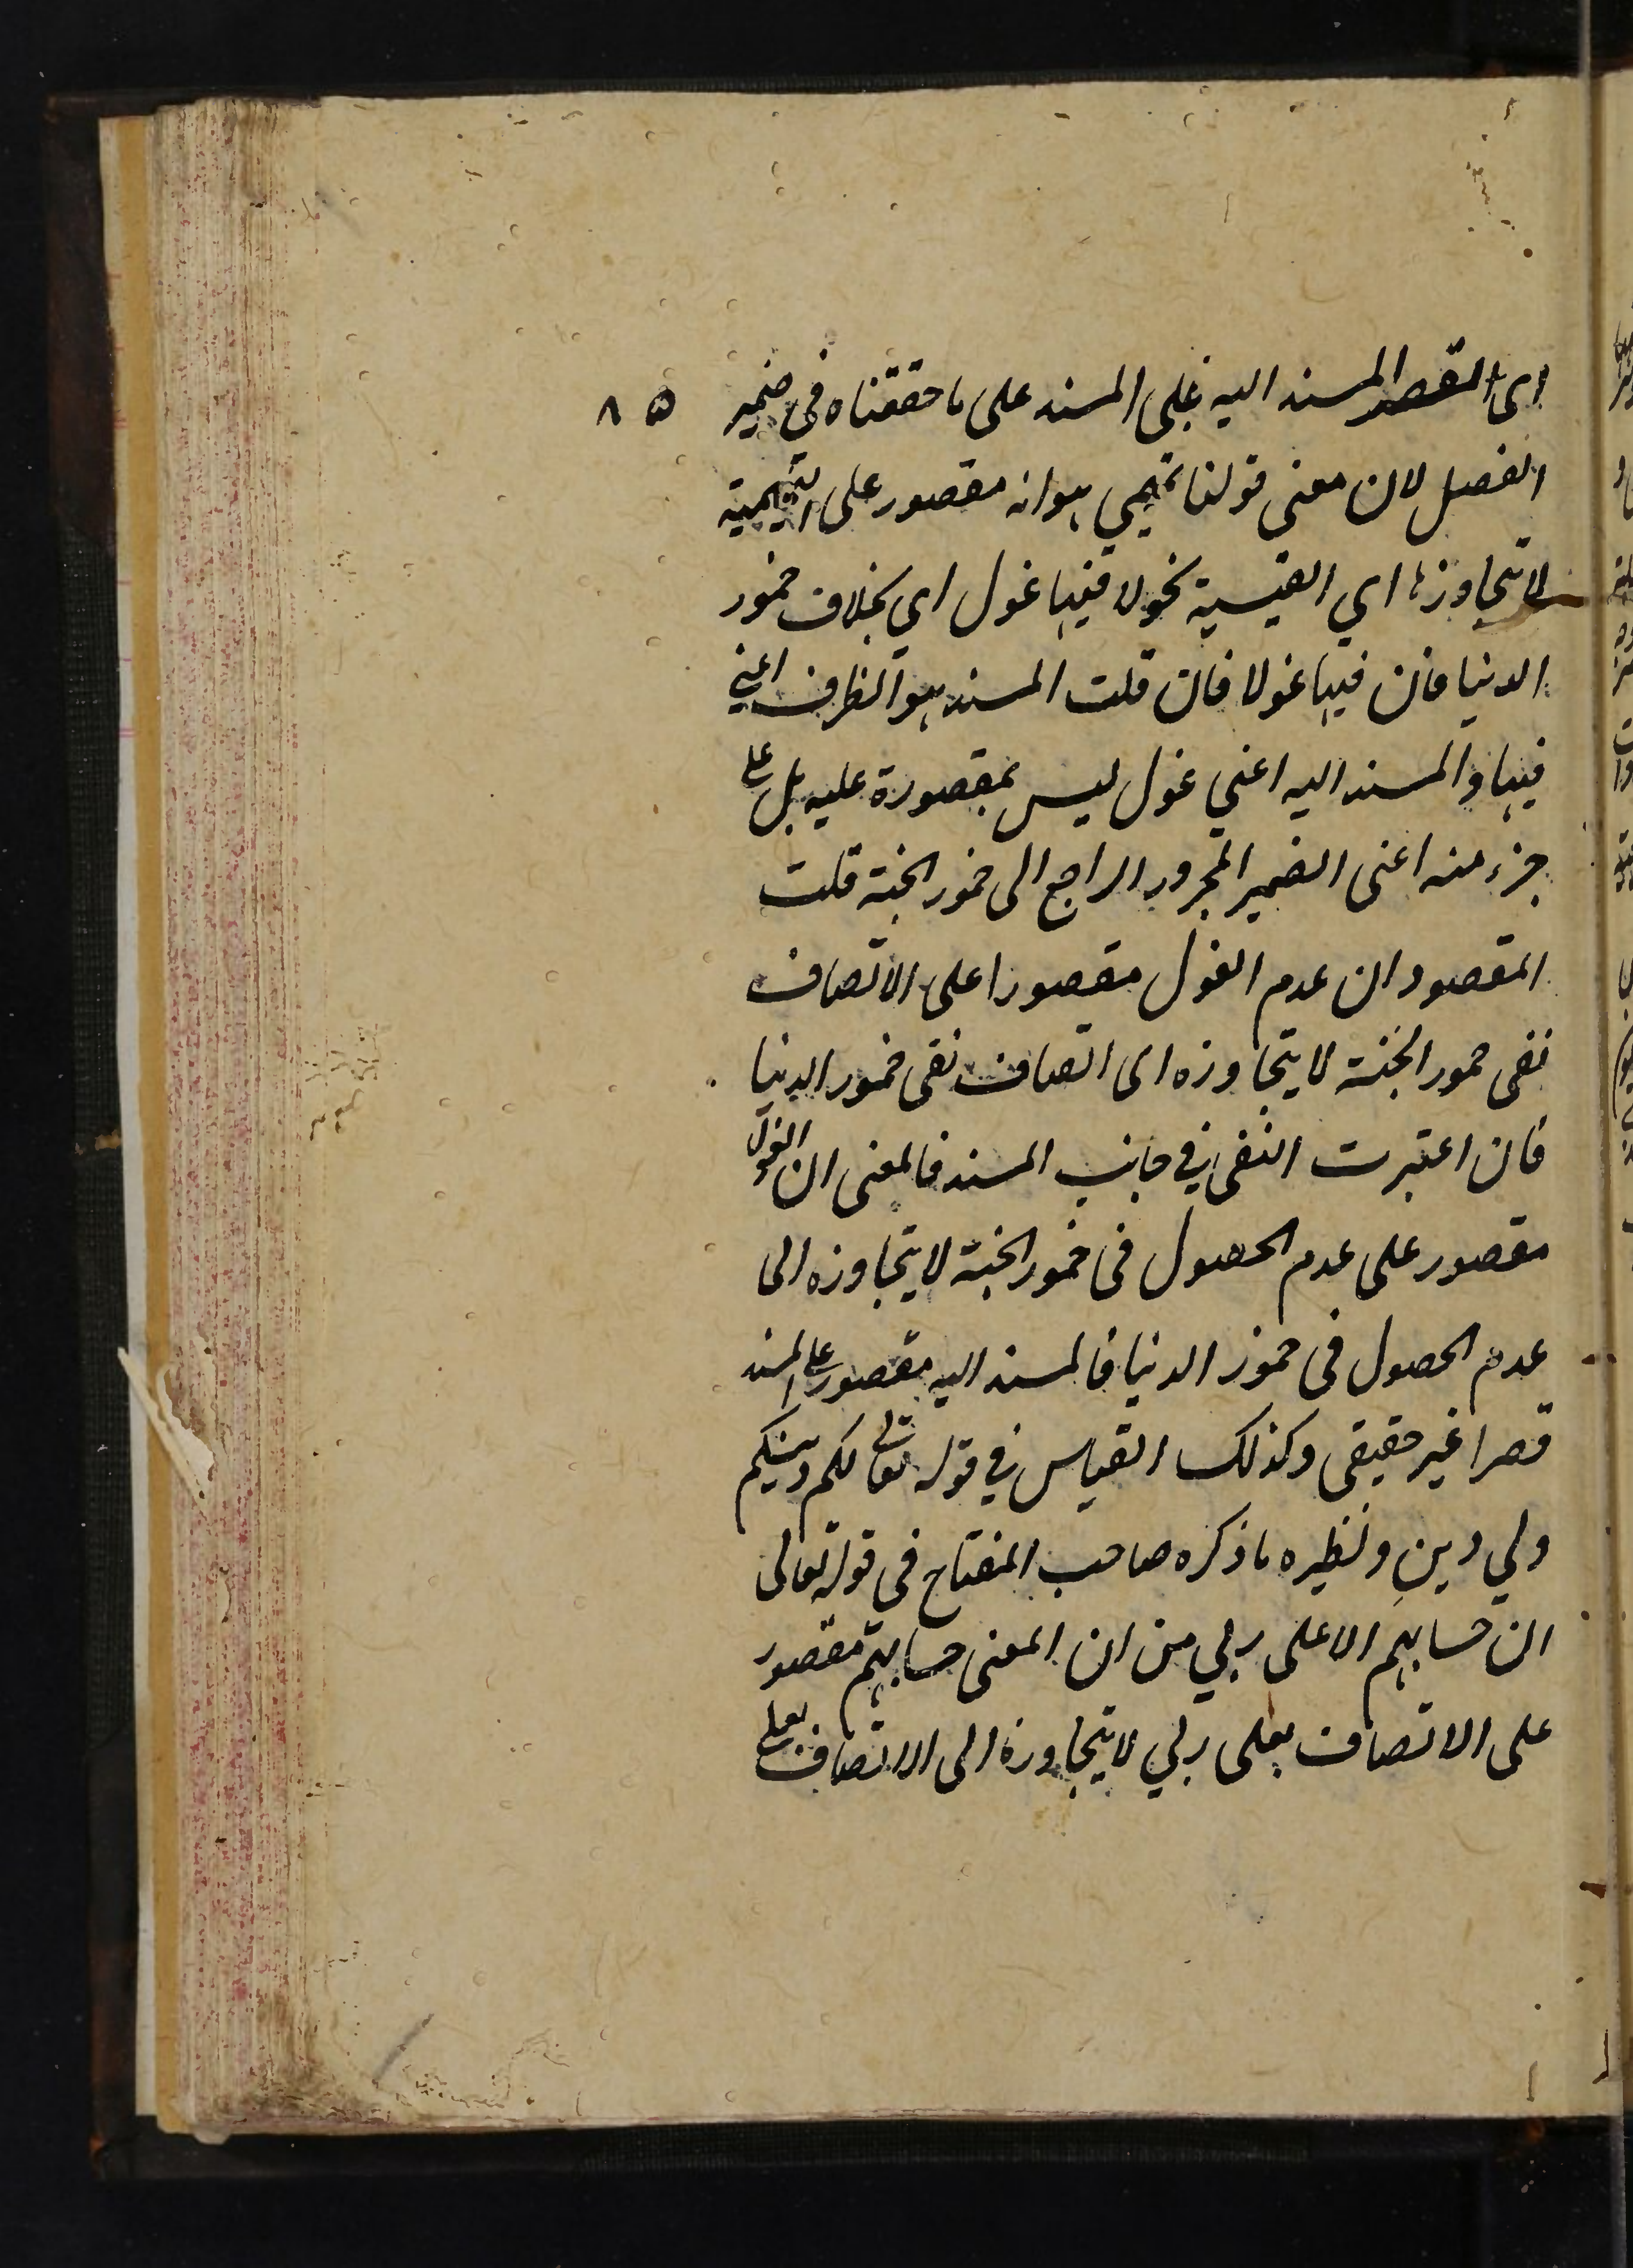 اى القصر المسند اليه على المسند على ما حققناه فى ضمير ٨٥
الفصل لان معنى قولنا تميمي هو انه مقصور على التميمية
لا يتجاوزها اي القيسية نحو لا فيها غول اي بخلاف خمور
الدنيا فان فيها غولا فان قلت المسند هو الظرف اعني
فيها والمسند اليه اعني غول ليس بمقصورة عليه بل على
جزء منه اعنى الضمير المجرور الراجع الى خمور الجنة قلت
المقصود ان عدم الغول مقصورا على الاتصاف
نفى خمور الجنة لا يتجاوزه اى اتصاف نفى خمور الدنيا
فان اعتبرت النفى في جانب المسند فالمعنى ان الغول
مقصور على عدم الحصول فى خمور الجنة لا يتجاوزه الى
عدم الحصول فى خمور الدنيا فالمسند اليه مقصور على المسند
قصرا غير حقيقى وكذلك القياس في قوله تعالى لكم دينكم
ولي دين ونظيره ما ذكره صاحب المفتاح فى قوله تعالى
ان حسابهم الا على ربي من ان المعنى حسابهم مقصور
على الاتصاف بعلى ربي لا يتجاوزه الى الاتصاف بعلى